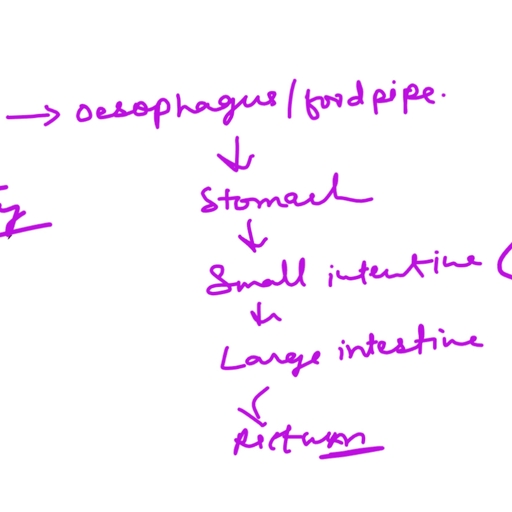 → Oesophagus/foodpipe.
↓
Stomach
↓
Small intestine (
↓
Large intestine
↓
Rectum